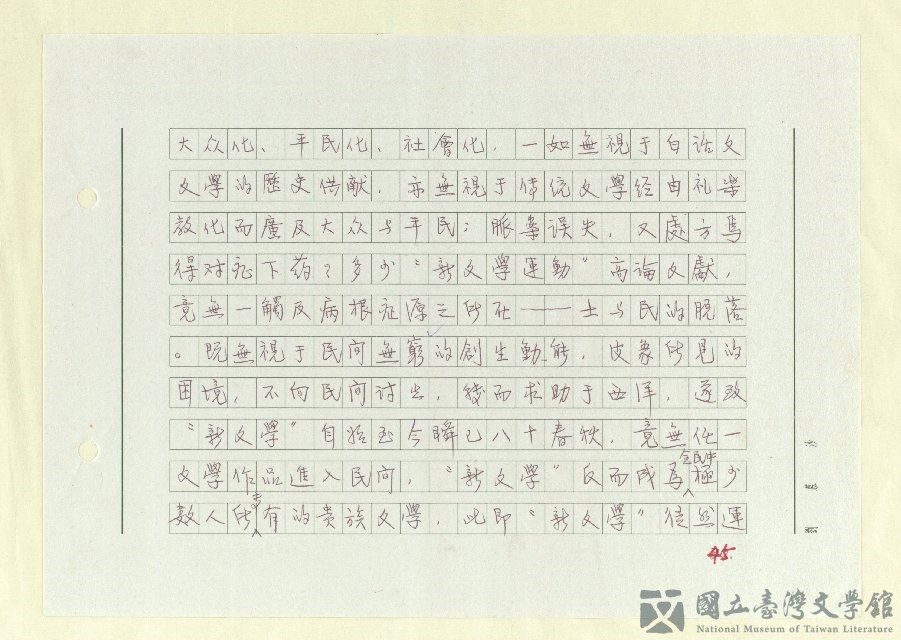 大众化、平民化、社會化，一如無視于白话文
文學的歷史供献，亦無視于传统文學经由礼樂
敎化而廣及大众与平民；脈案误失，又處方焉
得对症下药？多少“新文學運動”高論文獻，
竟無一觸及病根症源之所在——土与民的脱落
。既無視于民间無窮的創生動能，皮象所見的
困境，不向民间讨生，後而求助于西洋，遂致
“新文學”自始至今瞬已八十春秋，竟無任一
文學作品進入民间，“新文學”反而成爲全民中極少
数人所专有的贵族文學，此即“新文學”徒然運
45.
國立臺灣文學館
National Museum of Taiwan Literature